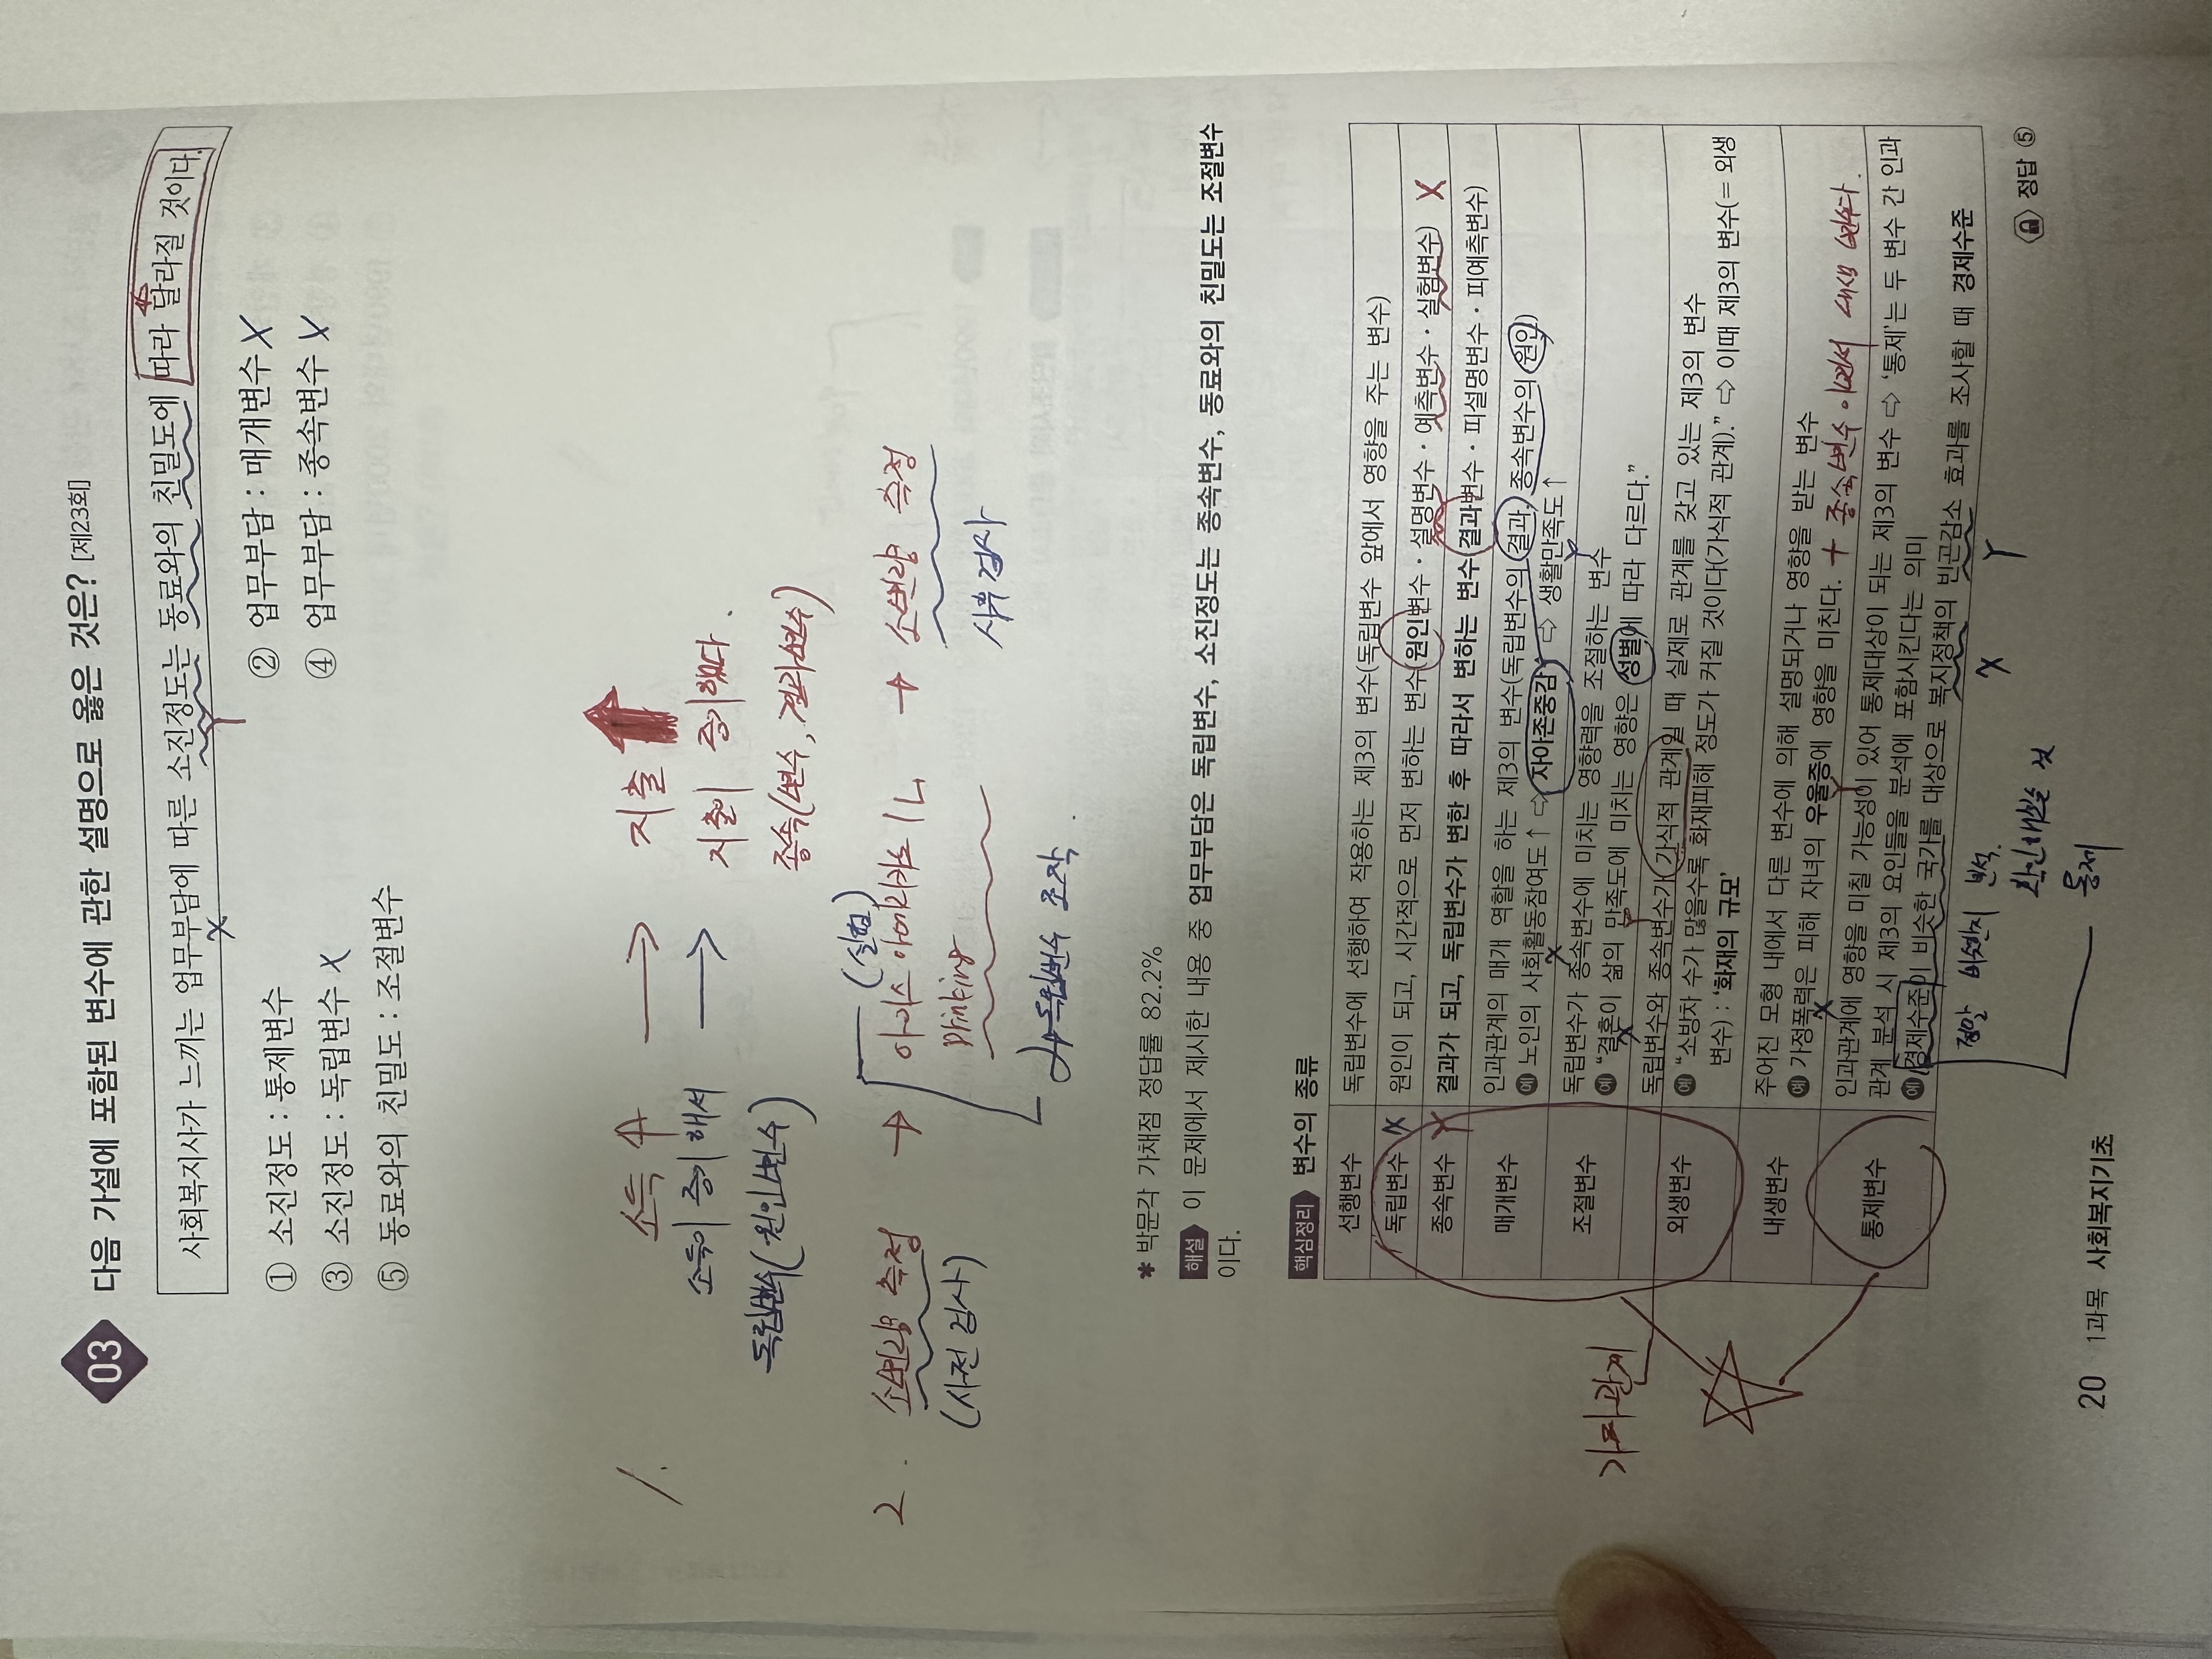 03 다음 가설에 포함된 변수에 관한 설명으로 옳은 것은? [제23회]
사회복지사가 느끼는 업무부담에 따른 소진정도는 동료와의 친밀도에 따라 달라질 것이다.
X Y
① 소진정도 : 통제변수 ② 업무부담 : 매개변수 X
③ 소진정도 : 독립변수 X ④ 업무부담 : 종속변수 X
⑤ 동료와의 친밀도 : 조절변수
1. 소득 ↑ → 지출 ↑
소득이 증가해서 → 지출이 증가했다.
독립변수(원인변수) 종속(변수, 결과변수)
(실험)
2. 소변량 측정 → 아이스 아메리카노 1L → 소변량 측정
(사전 검사) drinking 사후 검사
독립변수 조작
* 박문각 가채점 정답률 82.2%
해설 이 문제에서 제시한 내용 중 업무부담은 독립변수, 소진정도는 종속변수, 동료와의 친밀도는 조절변수
이다.
핵심정리 변수의 종류
선행변수 독립변수에 선행하여 작용하는 제3의 변수(독립변수 앞에서 영향을 주는 변수)
독립변수 X 원인이 되고, 시간적으로 먼저 변하는 변수(원인변수 · 설명변수 · 예측변수 · 실험변수) X
종속변수 Y 결과가 되고, 독립변수가 변한 후 따라서 변하는 변수(결과변수 · 피설명변수 · 피예측변수)
매개변수 인과관계의 매개 역할을 하는 제3의 변수(독립변수의 결과, 종속변수의 원인)
예 노인의 사회활동참여도 ↑ ⇨ 자아존중감 ⇨ 생활만족도 ↑
X Y
조절변수 독립변수가 종속변수에 미치는 영향력을 조절하는 변수
예 “결혼이 삶의 만족도에 미치는 영향은 성별에 따라 다르다.”
X Y
외생변수 독립변수와 종속변수가 가식적 관계일 때 실제로 관계를 갖고 있는 제3의 변수
예 “소방차 수가 많을수록 화재피해 정도가 커질 것이다(가식적 관계).” ⇨ 이때 제3의 변수(= 외생
변수) : ‘화재의 규모’
내생변수 주어진 모형 내에서 다른 변수에 의해 설명되거나 영향을 받는 변수
예 가정폭력은 피해 자녀의 우울증에 영향을 미친다. + 종속변수이면서 내생변수다.
X Y
통제변수 인과관계에 영향을 미칠 가능성이 있어 통제대상이 되는 제3의 변수 ⇨ ‘통제’는 두 변수 간 인과
관계 분석 시 제3의 요인들을 분석에 포함시킨다는 의미
예 경제수준이 비슷한 국가를 대상으로 복지정책의 빈곤감소 효과를 조사할 때 경제수준
X Y
가짜관계
정말 비슷한지 분석.
확인해봤을 것
통제
정답 ⑤
20 1과목 사회복지기초